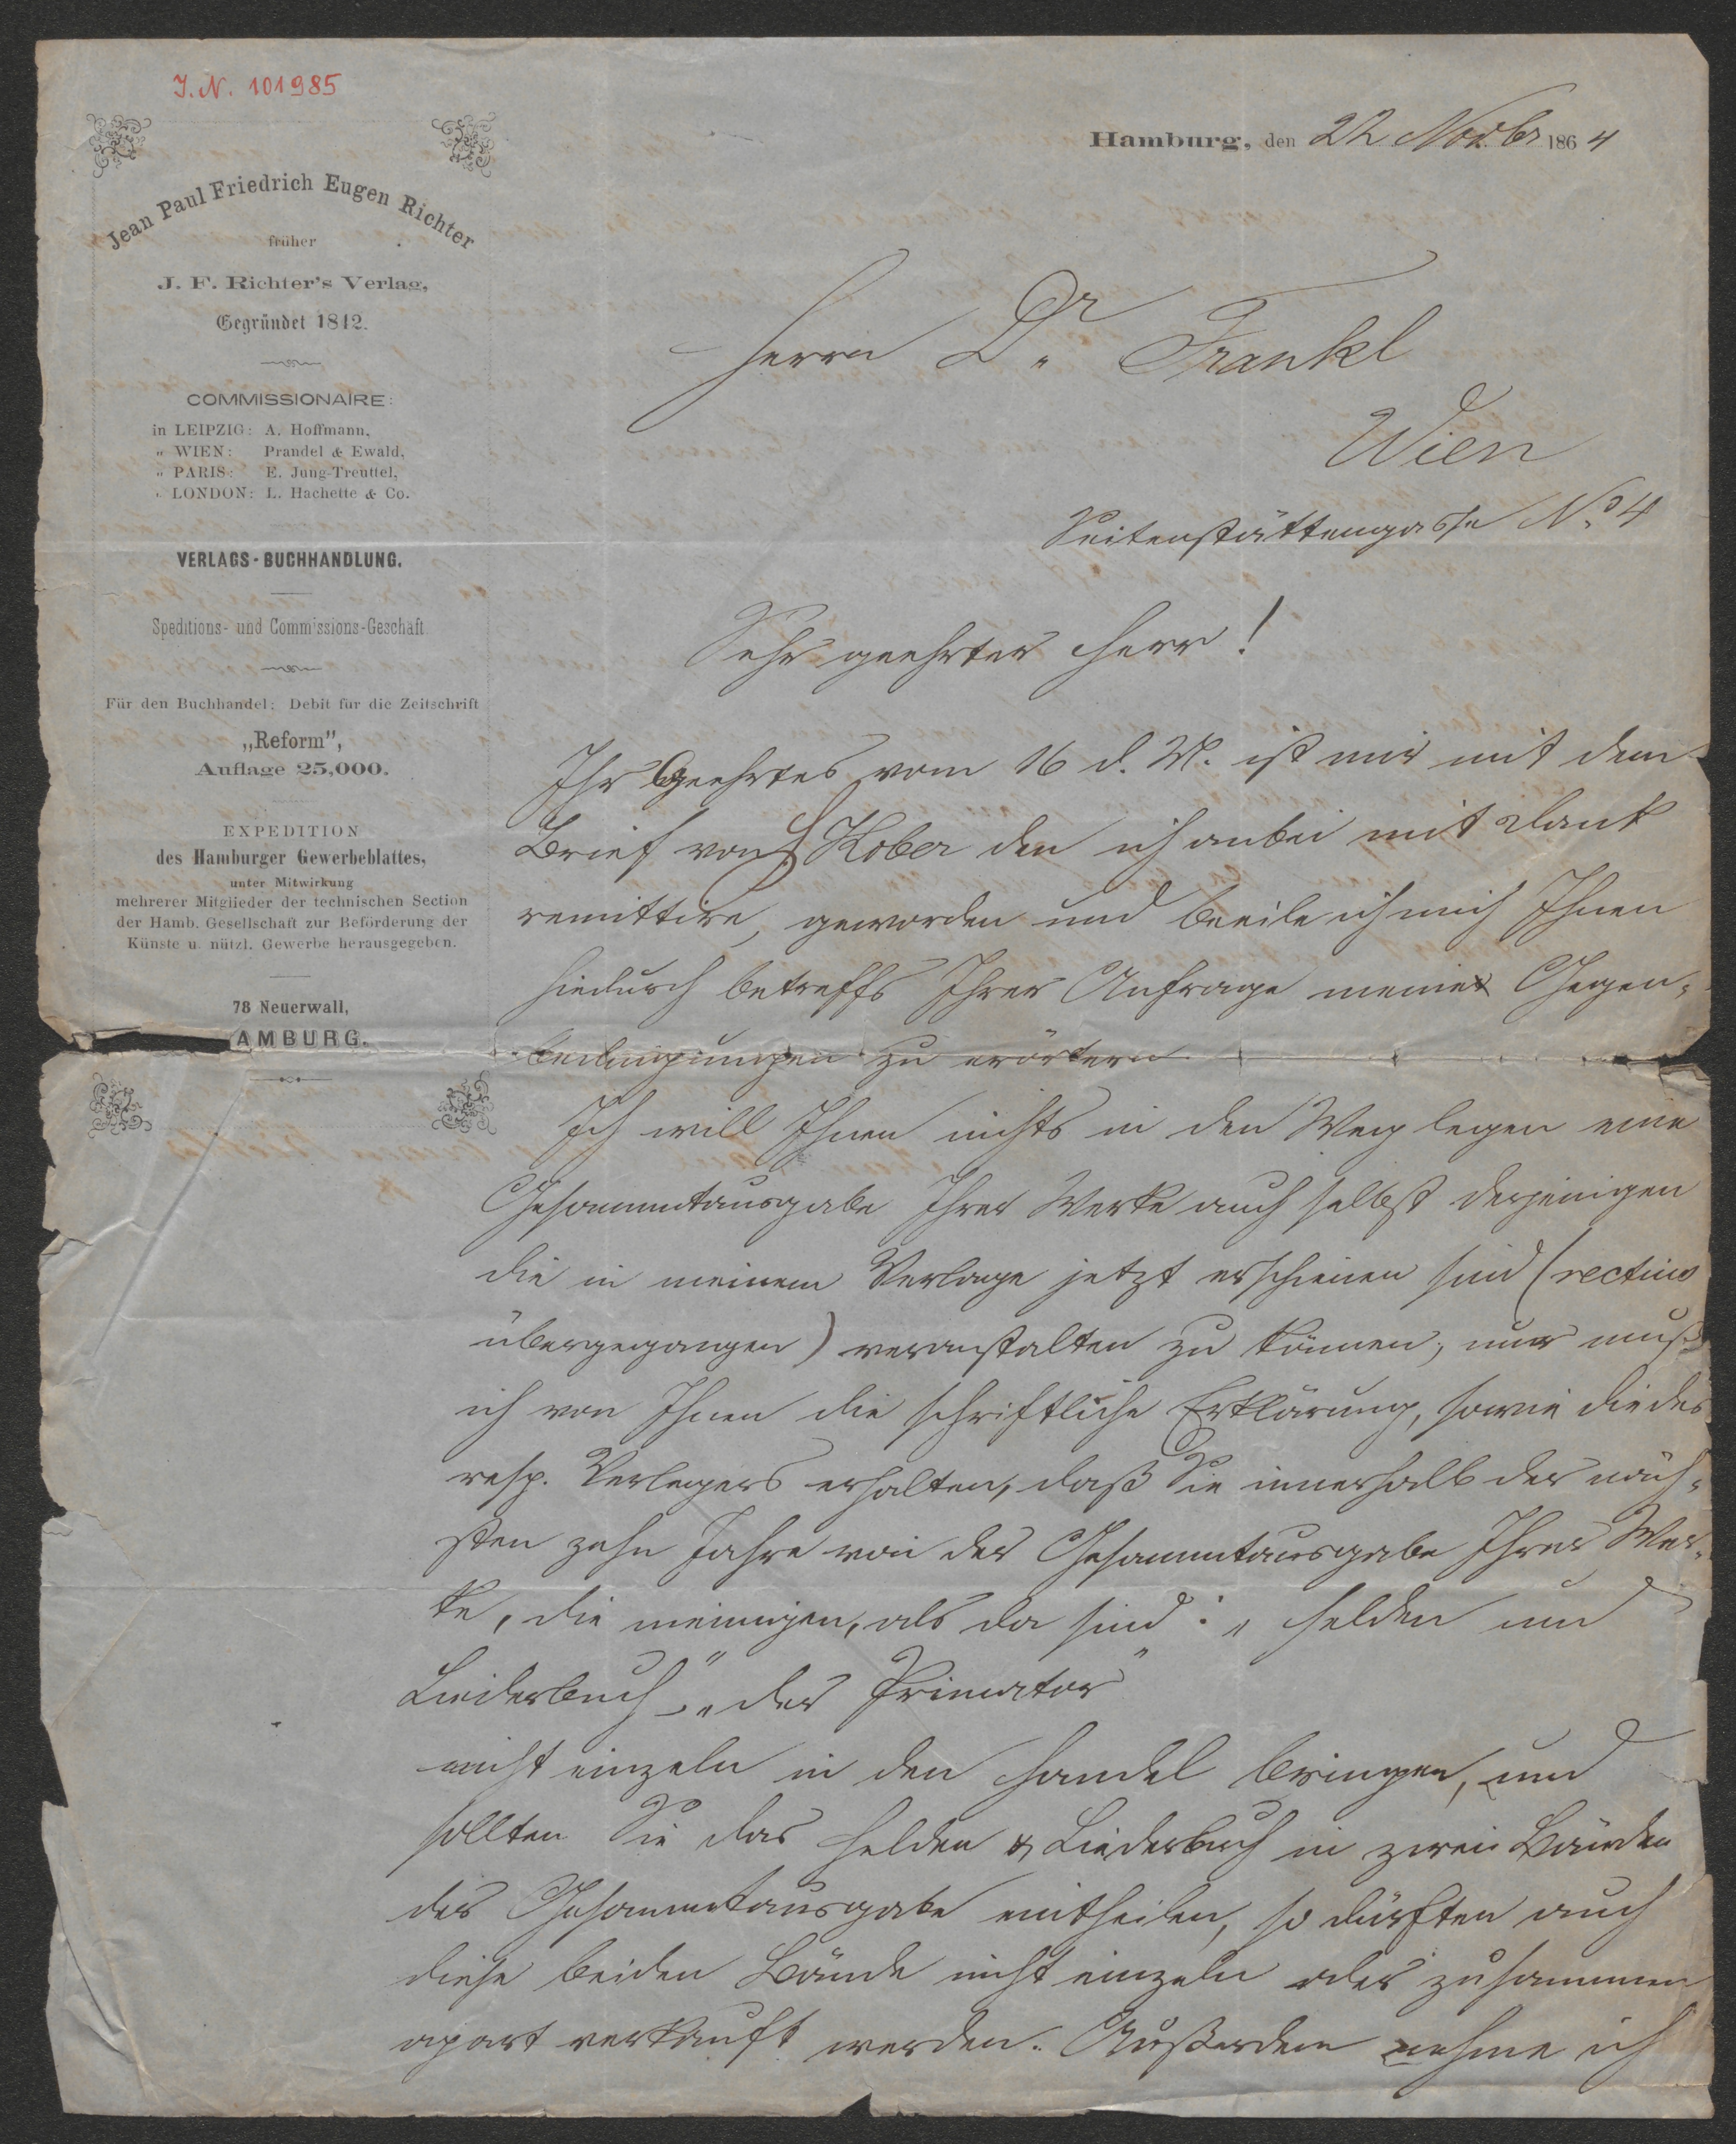 J. N. 101985
Jean Paul Friedrich Eugen Richter
früher
J. F. Richter's Verlag,
Gegründet 1842.
COMMISSIONAIRE:
in LEIPZIG: A. Hoffmann,
„ WIEN: Prandel & Ewald,
„ PARIS: E. Jung-Treuttel,
„ LONDON: L. Hachette & Co.
VERLAGS-BUCHHANDLUNG.
Speditions- und Commissions-Geschäft
Für den Buchhandel: Debit für die Zeitschrift
„Reform”,
Auflage 25,000.
EXPEDITION
des Hamburger Gewerbeblattes,
unter Mitwirkung
mehrerer Mitglieder der technischen Section
der Hamb. Gesellschaft zur Beförderung der
Künste u. nützl. Gewerbe herausgegeben.
78 Neuerwall,
AMBURG.
Hamburg, den 22 Novbr 1864
Herrn Dr. Frankl
Wien
Seitenstättengasse No 4
Sehr geehrter Herr!
Ihr Geehrtes vom 16 d. M. ist mir mit dem
Brief von H Kober den ich anbei mit Dank
remittire, geworden und beeile ich mich Ihnen
hiedurch betreffs Ihrer Anfrage meine Gegen-
bedingungen zu erörtern.
Ich will Ihnen nichts in den Weg legen eine
Gesammtausgabe Ihrer Werke auch selbst derjenigen
die in meinem Verlage jetzt erschienen sind (rectius
übergegangen) veranstalten zu können, nur muß
ich von Ihnen die schriftliche Erklärung, sowie die des
resp. Verlegers erhalten, daß Sie innerhalb der näch-
sten zehn Jahre von der Gesammtausgabe Ihrer Wer-
ke, die meinigen, als da sind: „Helden und
Liederbuch”, „der Primator”
nicht einzeln in den Handel bringen, und
sollten Sie das Helden & Liederbuch in zwei Bänden
der Gesammtausgabe eintheilen, so dürften auch
diese beiden Bände nicht einzeln oder zusammen
apart verkauft werden. Außerdem nehme ich